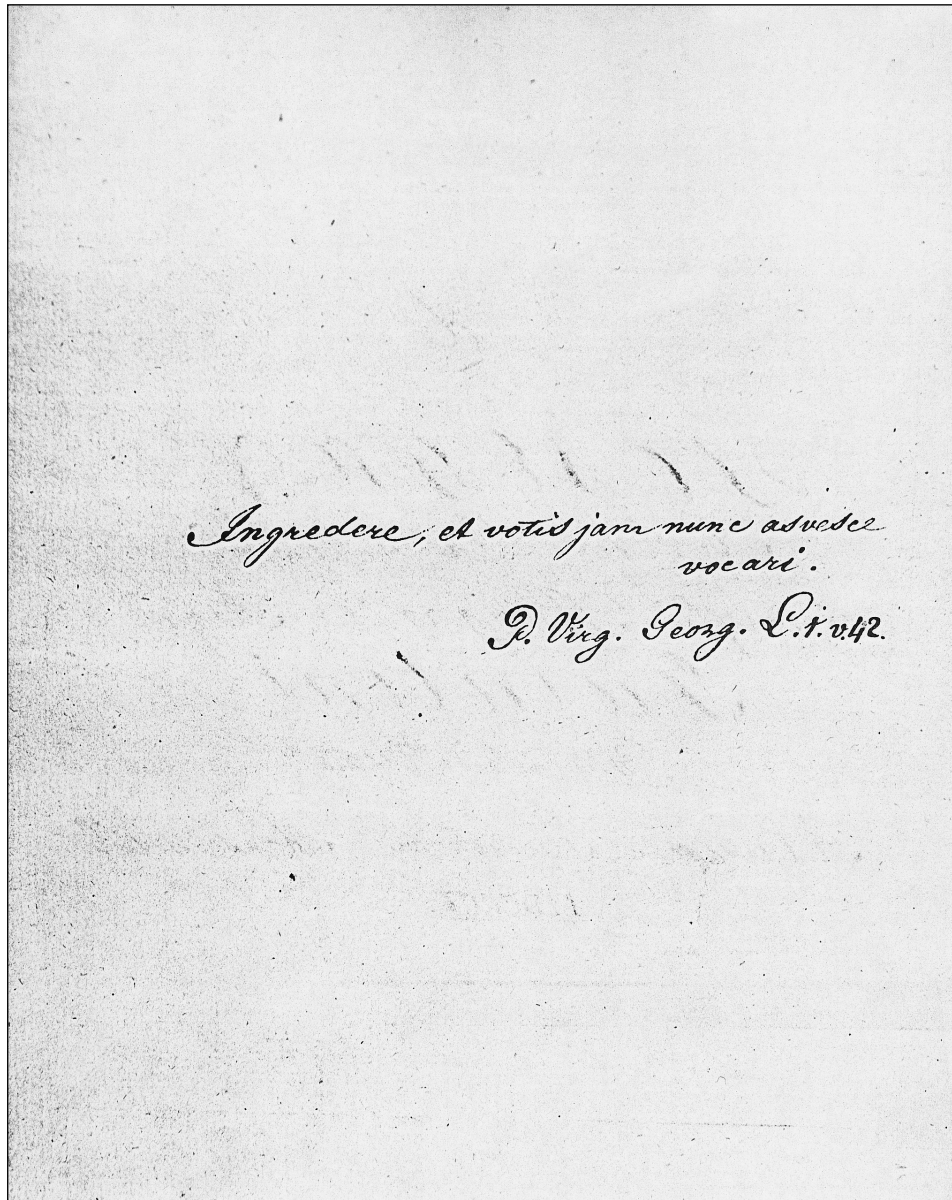 Ingredere, et votis jam nunc asvesce
vocari.
P. Virg. Georg. L.1.v.42.